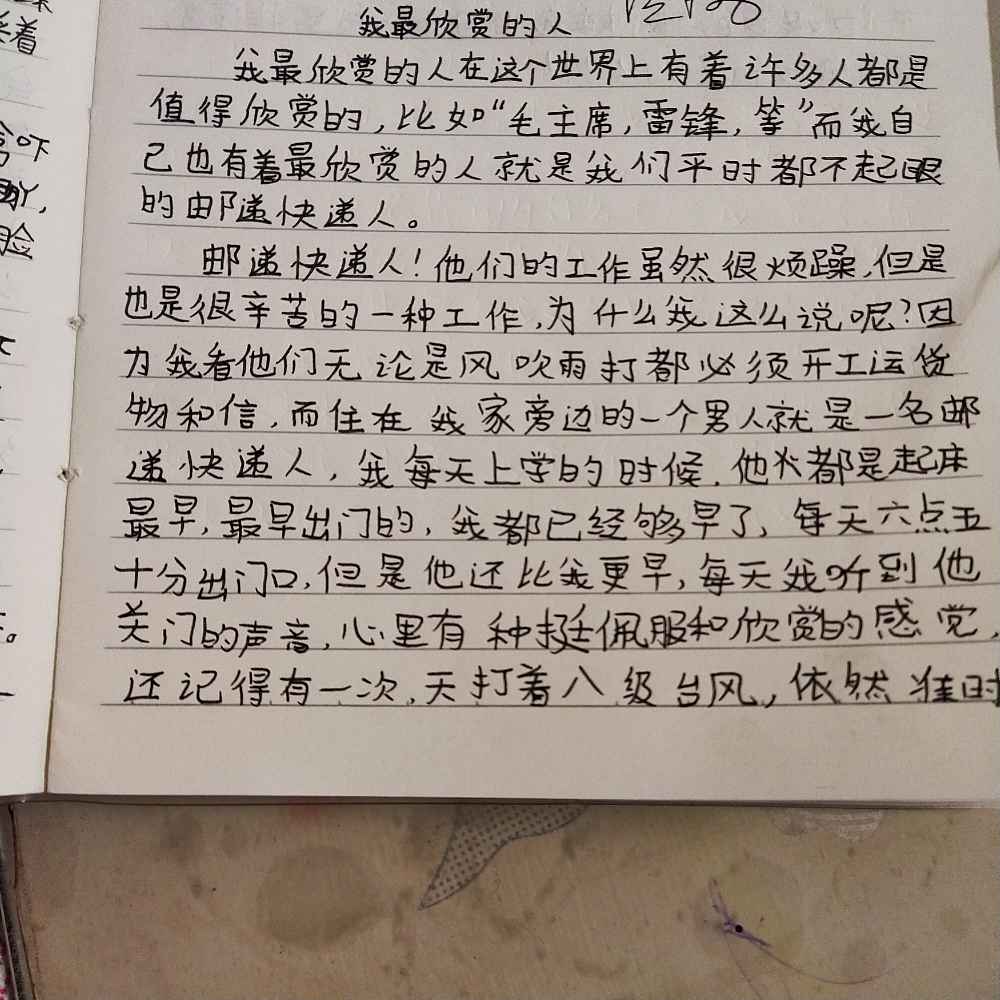 我最欣赏的人
我最欣赏的人在这个世界上有着许多人都是
值得欣赏的,比如“毛主席,雷锋,等”而我自
己也有着最欣赏的人就是我们平时都不起眼
的邮递快递人。
邮递快递人!他们的工作虽然很烦躁,但是
也是很辛苦的一种工作,为什么我这么说呢?因
为我看他们无论是风吹雨打都必须开工运货
物和信,而住在我家旁边的一个男人就是一名邮
递快递人,我每天上学的时候.他都是起床
最早,最早出门的,我都已经够早了,每天六点五
十分出门口,但是他还比我更早,每天我听到他
关门的声音,心里有种挺佩服和欣赏的感觉,
还记得有一次,天打着八级台风,依然准时